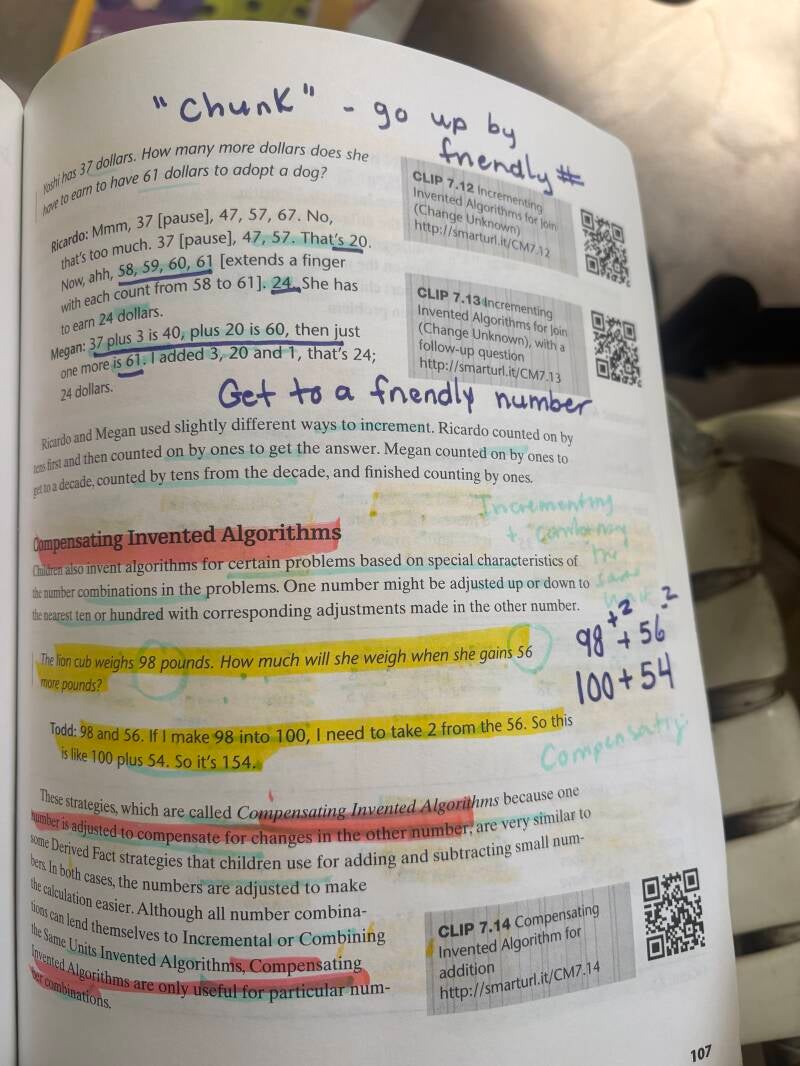 "Chunk" - go up by
friendly #
Yoshi has 37 dollars. How many more dollars does she
have to earn to have 61 dollars to adopt a dog?
CLIP 7.12 Incrementing
Invented Algorithms for Join
(Change Unknown)
http://smarturl.it/CM7.12
Ricardo: Mmm, 37 [pause], 47, 57, 67. No,
that's too much. 37 [pause], 47, 57. That's 20.
Now, ahh, 58, 59, 60, 61 [extends a finger
with each count from 58 to 61]. 24. She has
to earn 24 dollars.
Megan: 37 plus 3 is 40, plus 20 is 60, then just
one more is 61. I added 3, 20 and 1, that's 24;
24 dollars.
CLIP 7.13 Incrementing
Invented Algorithms for Join
(Change Unknown), with a
follow-up question
http://smarturl.it/CM7.13
Get to a friendly number
Ricardo and Megan used slightly different ways to increment. Ricardo counted on by
tens first and then counted on by ones to get the answer. Megan counted on by ones to
get to a decade, counted by tens from the decade, and finished counting by ones.
Incrementing
+ combining
the
same
Compensating Invented Algorithms
Children also invent algorithms for certain problems based on special characteristics of
the number combinations in the problems. One number might be adjusted up or down to
the nearest ten or hundred with corresponding adjustments made in the other number.
+2 -2
98 + 56
100 + 54
The lion cub weighs 98 pounds. How much will she weigh when she gains 56
more pounds?
Todd: 98 and 56. If I make 98 into 100, I need to take 2 from the 56. So this
is like 100 plus 54. So it's 154.
Compensating
These strategies, which are called Compensating Invented Algorithms because one
number is adjusted to compensate for changes in the other number, are very similar to
some Derived Fact strategies that children use for adding and subtracting small num-
bers. In both cases, the numbers are adjusted to make
the calculation easier. Although all number combina-
tions can lend themselves to Incremental or Combining
the Same Units Invented Algorithms, Compensating
Invented Algorithms are only useful for particular num-
ber combinations.
CLIP 7.14 Compensating
Invented Algorithm for
addition
http://smarturl.it/CM7.14
107